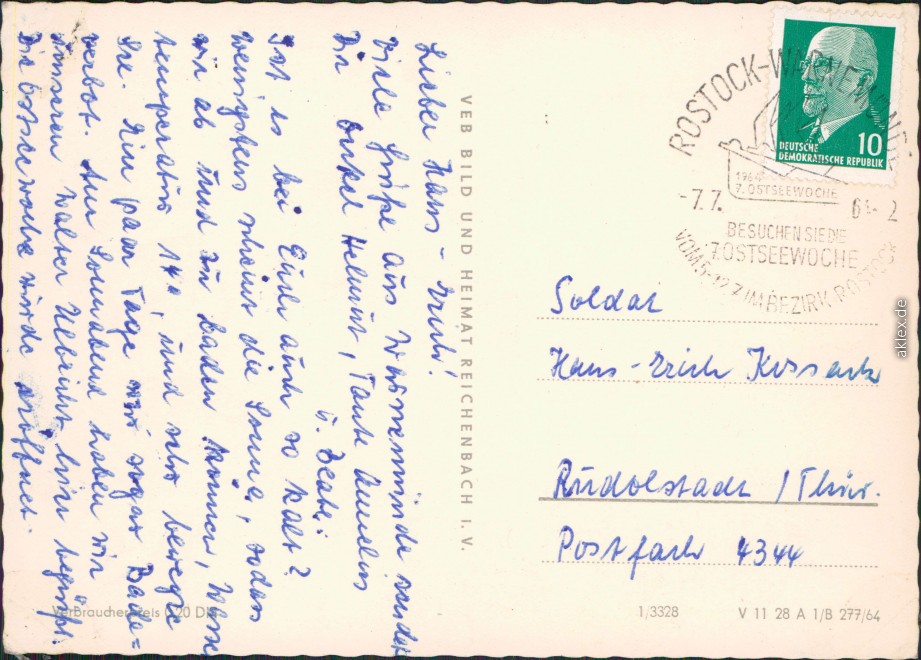 Lieber Hans-Erich!
Viele Grüße aus Warnemünde sendet
Dir Onkel Helmut, Tante Annelies
u. Beate!
Ist es bei Euch auch so kalt?
Wenigstens scheint die Sonne, sodass
wir ab und zu baden können, Wasser
temperatur 14°, und sehr bewegte
See. Ein paar Tage war sogar Bade=
verbot. Am Sonnabend haben wir
unseren Walter Ulbricht hier begrüßt.
Die Ostseewoche wurde eröffnet.
Verbraucherpreis 0,20 DM
VEB BILD UND HEIMAT REICHENBACH I. V.
DEUTSCHE
DEMOKRATISCHE REPUBLIK
10
ROSTOCK-WARNEMÜNDE
1964
7. OSTSEEWOCHE
-7.7. 64-2
BESUCHEN SIE DIE
7. OSTSEEWOCHE
VOM 5.-12.7. IM BEZIRK ROSTOCK
Soldat
Hans-Erich Kossack
Rudolstadt / Thür.
Postfach 4344
1/3328
V 11 28 A 1/B 277/64
aklex.de